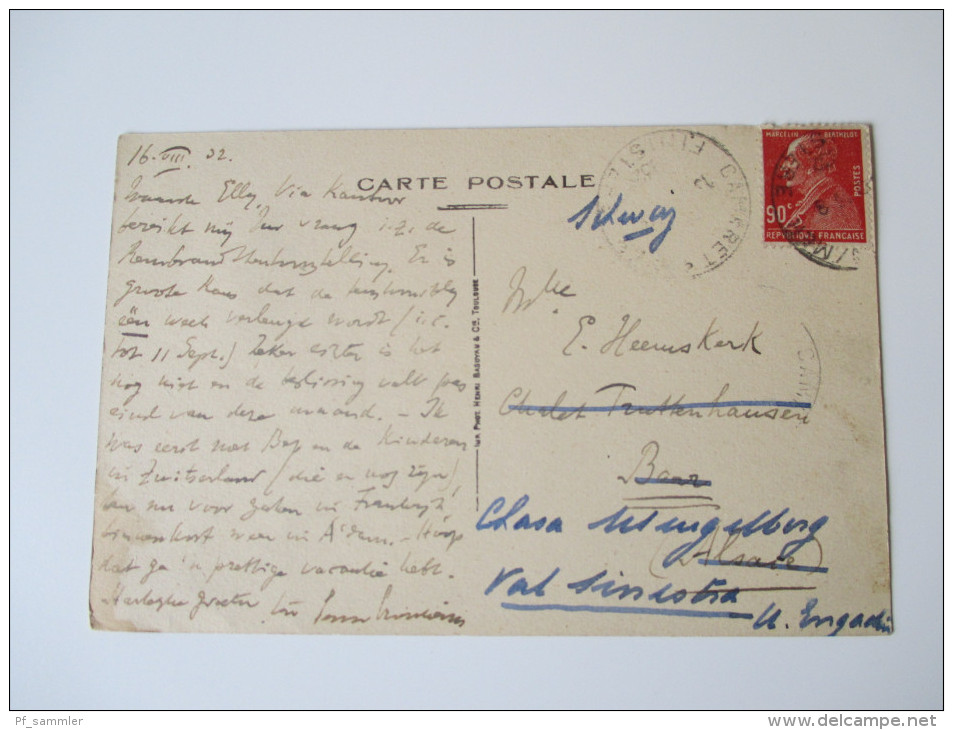 16. VIII. 32.
Waarde Elly, Via Kantoor
bereikt mij Uw vraag i.z. de
Rembrandttentoonstelling. Er is
groote kans dat de
één week verlengd wordt (i.c.
tot 11 Sept.) Zeker echter is het
nog niet en de beslissing valt pas
eind van deze maand. – Ik
was eerst met Bep en de kinderen
in Zwitserland (die er nog zijn),
ben nu voor zaken in Frankrijk,
binnenkort weer in A'dam. – Hoop
dat ge 'n prettige vacantie hebt.
Hartelijke groeten
CARTE POSTALE
IMP. PHOT. HENRI BASUYAU & CIE, TOULOUSE
CAMARET S
FINISTERE
MARCELIN BERTHELOT
POSTES
90c
REPVBLIQVE FRANÇAISE
Schweiz
Mlle
E. Heemskerk
Chalet Truttenhausen
Barr
(Alsace)
Chasa Mengelberg
Val Sinestra
U. Engadin
Pf_sammler
www.delcampe.net